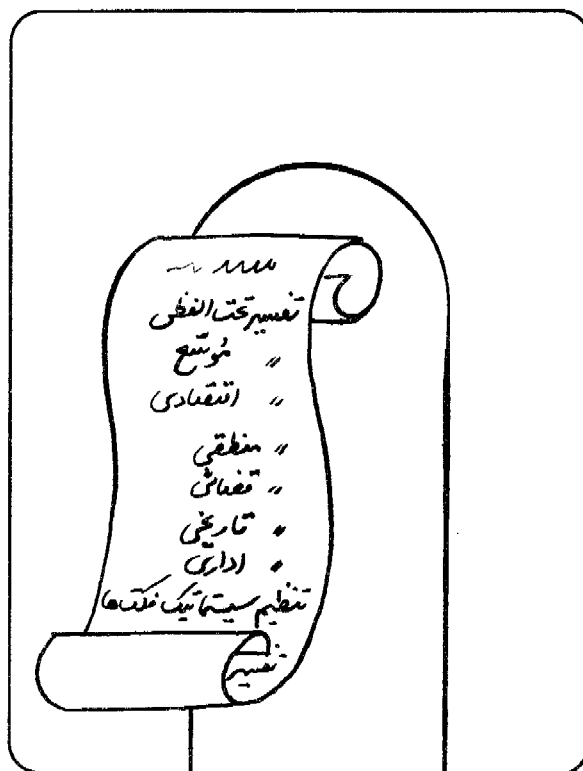 تفسیر تحت الفظی
〃 مُوسّع
〃 اقتصادی
〃 منطقی
〃 قضائی
〃 تاریخی
〃 اداری
تنظیم سیستماتیک فکت‌ها
تفسیر